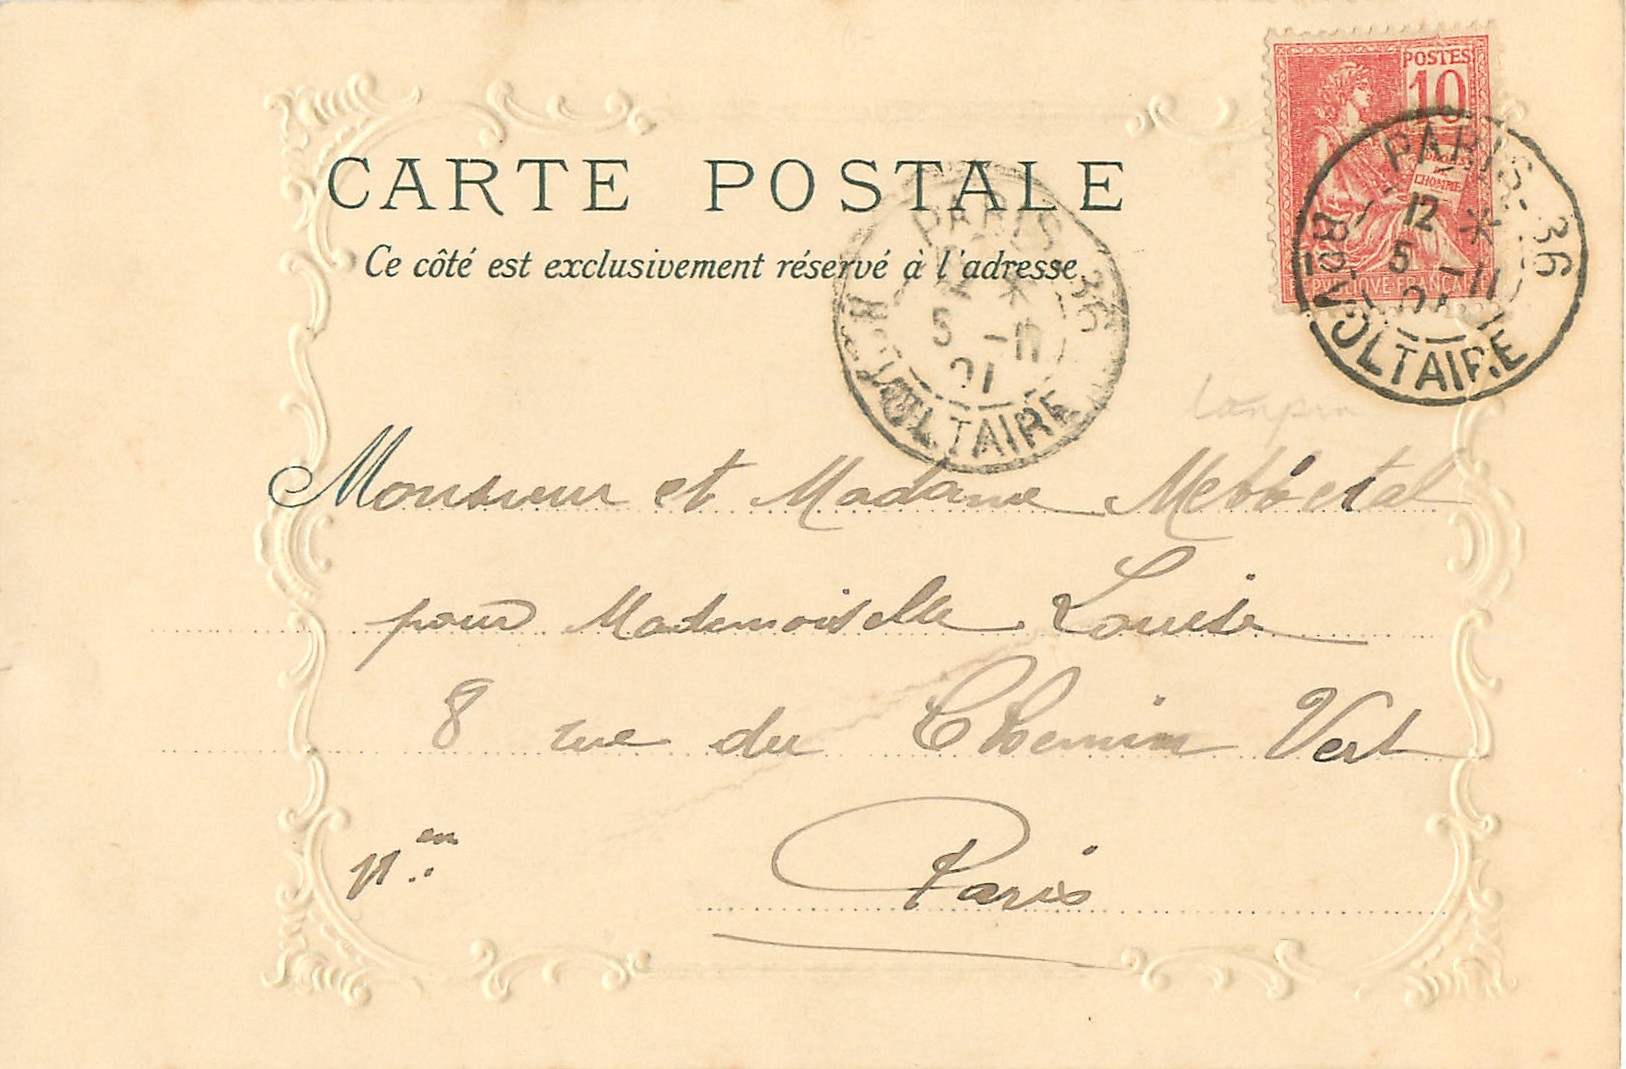 POSTES
10
DROITS
DE
L'HOMME
REPUBLIQUE FRANCAISE
CARTE POSTALE
Ce côté est exclusivement réservé à l'adresse
PARIS-36
12
5 - 11
01
Bd VOLTAIRE
PARIS 36
12
5 - 11
01
Bd VOLTAIRE
Monsieur et Madame
pour Mademoiselle Louise
8 rue du Chemin Vert
Paris